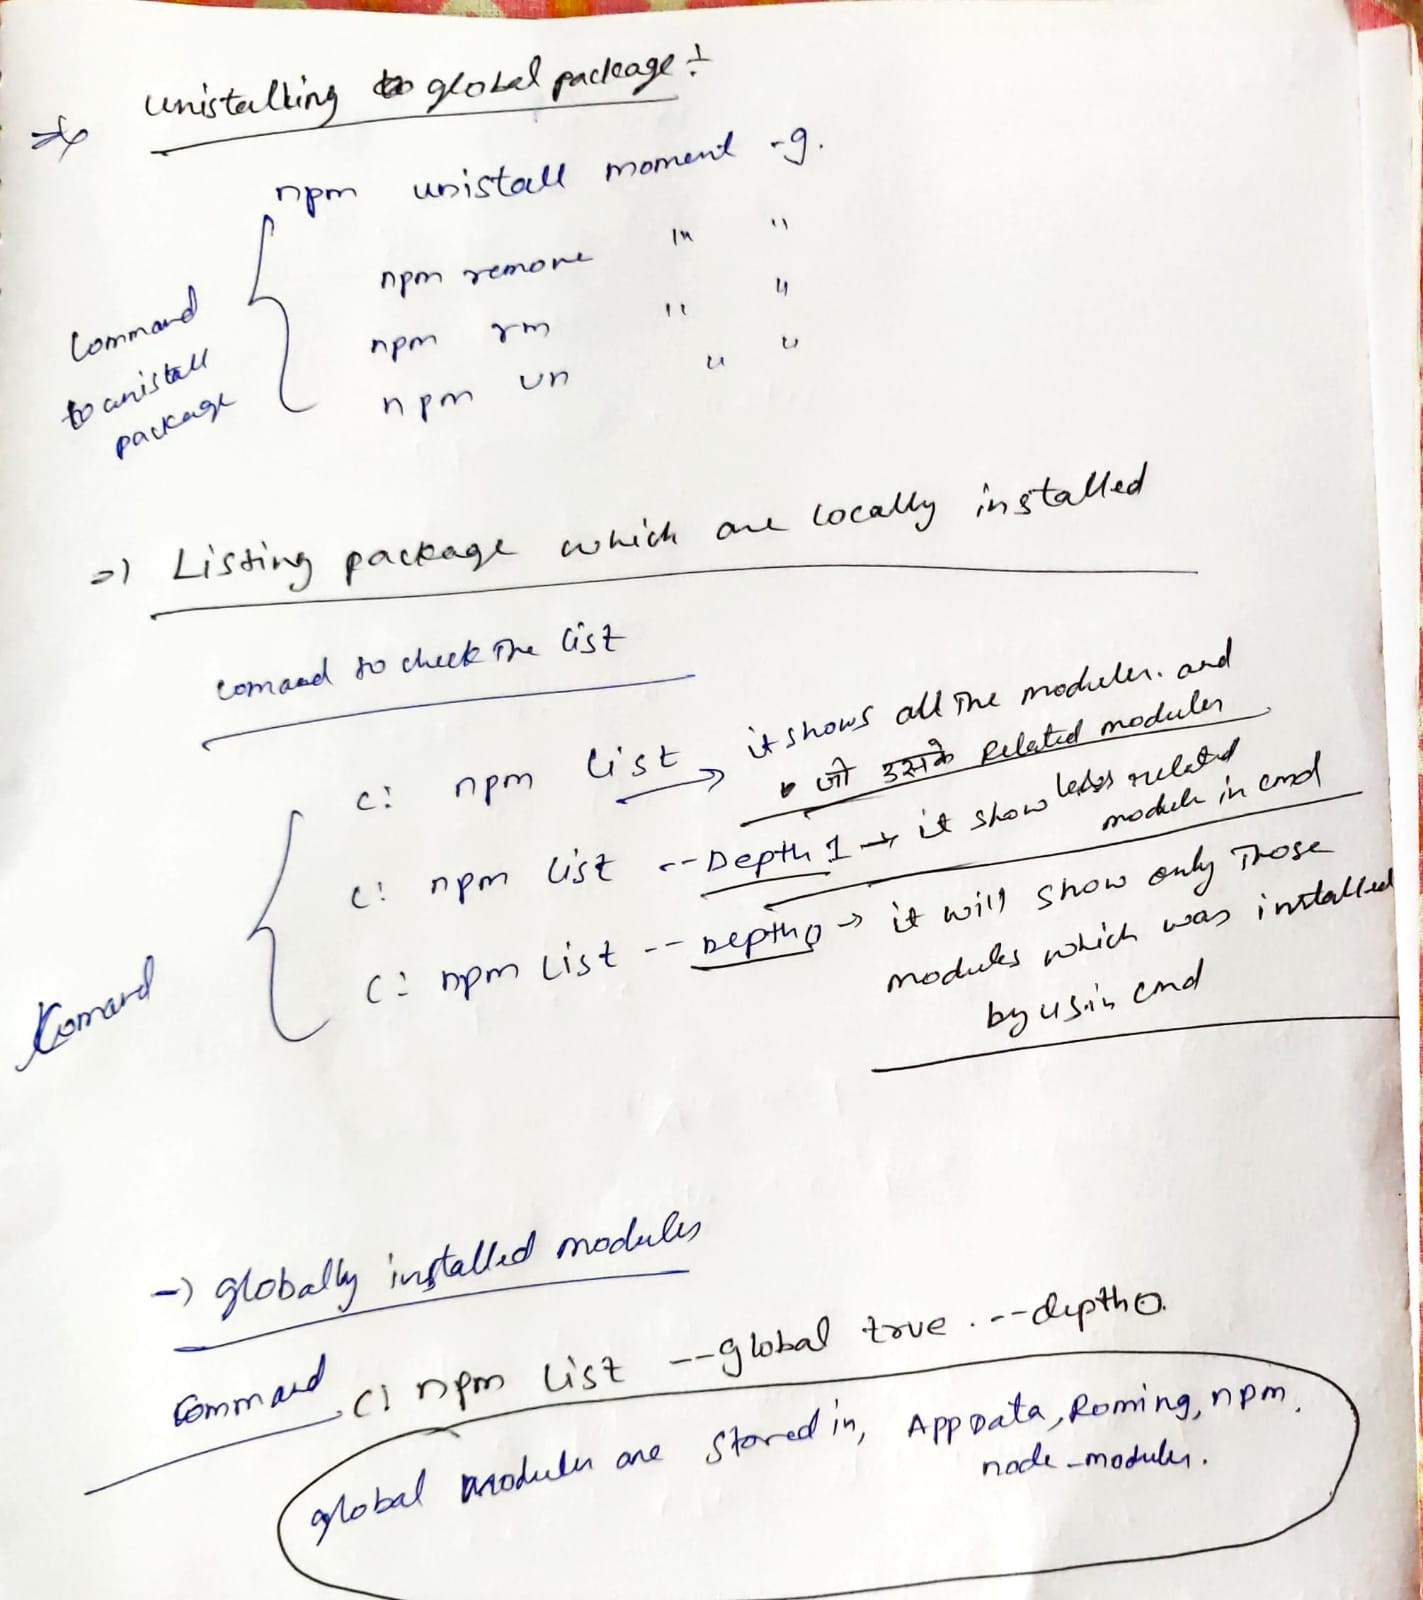 => unistalling global package ÷
npm unistall moment -g.
npm remove " "
npm rm " "
npm un " "
Command
to unistall
package
=) Listing package which are locally installed
comand to check The list
c: npm list → it shows all The modules. and
जो उसके Related modules
c: npm list --Depth 1 → it show less related
module in cmd
c: npm List --Depth 0 → it will show only Those
modules which was installed
by us in cmd
Comand
-) globally installed modules
Command c: npm List --global true . --depth 0.
global modules are stored in, AppData, Roming, npm,
node-modules.